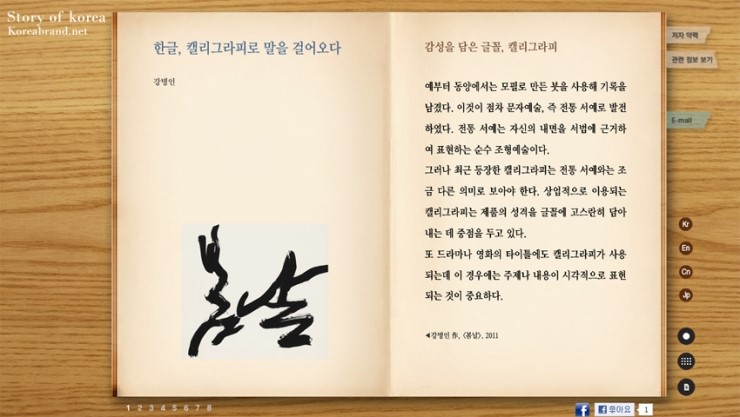 Story of korea
Koreabrand.net
한글, 캘리그라피로 말을 걸어오다
강병인
봄날
감성을 담은 글꼴, 캘리그라피
예부터 동양에서는 모필로 만든 붓을 사용해 기록을
남겼다. 이것이 점차 문자예술, 즉 전통 서예로 발전
하였다. 전통 서예는 자신의 내면을 서법에 근거하
여 표현하는 순수 조형예술이다.
그러나 최근 등장한 캘리그라피는 전통 서예와는 조
금 다른 의미로 보아야 한다. 상업적으로 이용되는
캘리그라피는 제품의 성격을 글꼴에 고스란히 담아
내는 데 중점을 두고 있다.
또 드라마나 영화의 타이틀에도 캘리그라피가 사용
되는데 이 경우에는 주제나 내용이 시각적으로 표현
되는 것이 중요하다.
◀강병인 作, <봄날>, 2011
저자 약력
관련 정보 보기
E-mail
Kr
En
Cn
Jp
1 2 3 4 5 6 7 8
f
f 좋아요 1